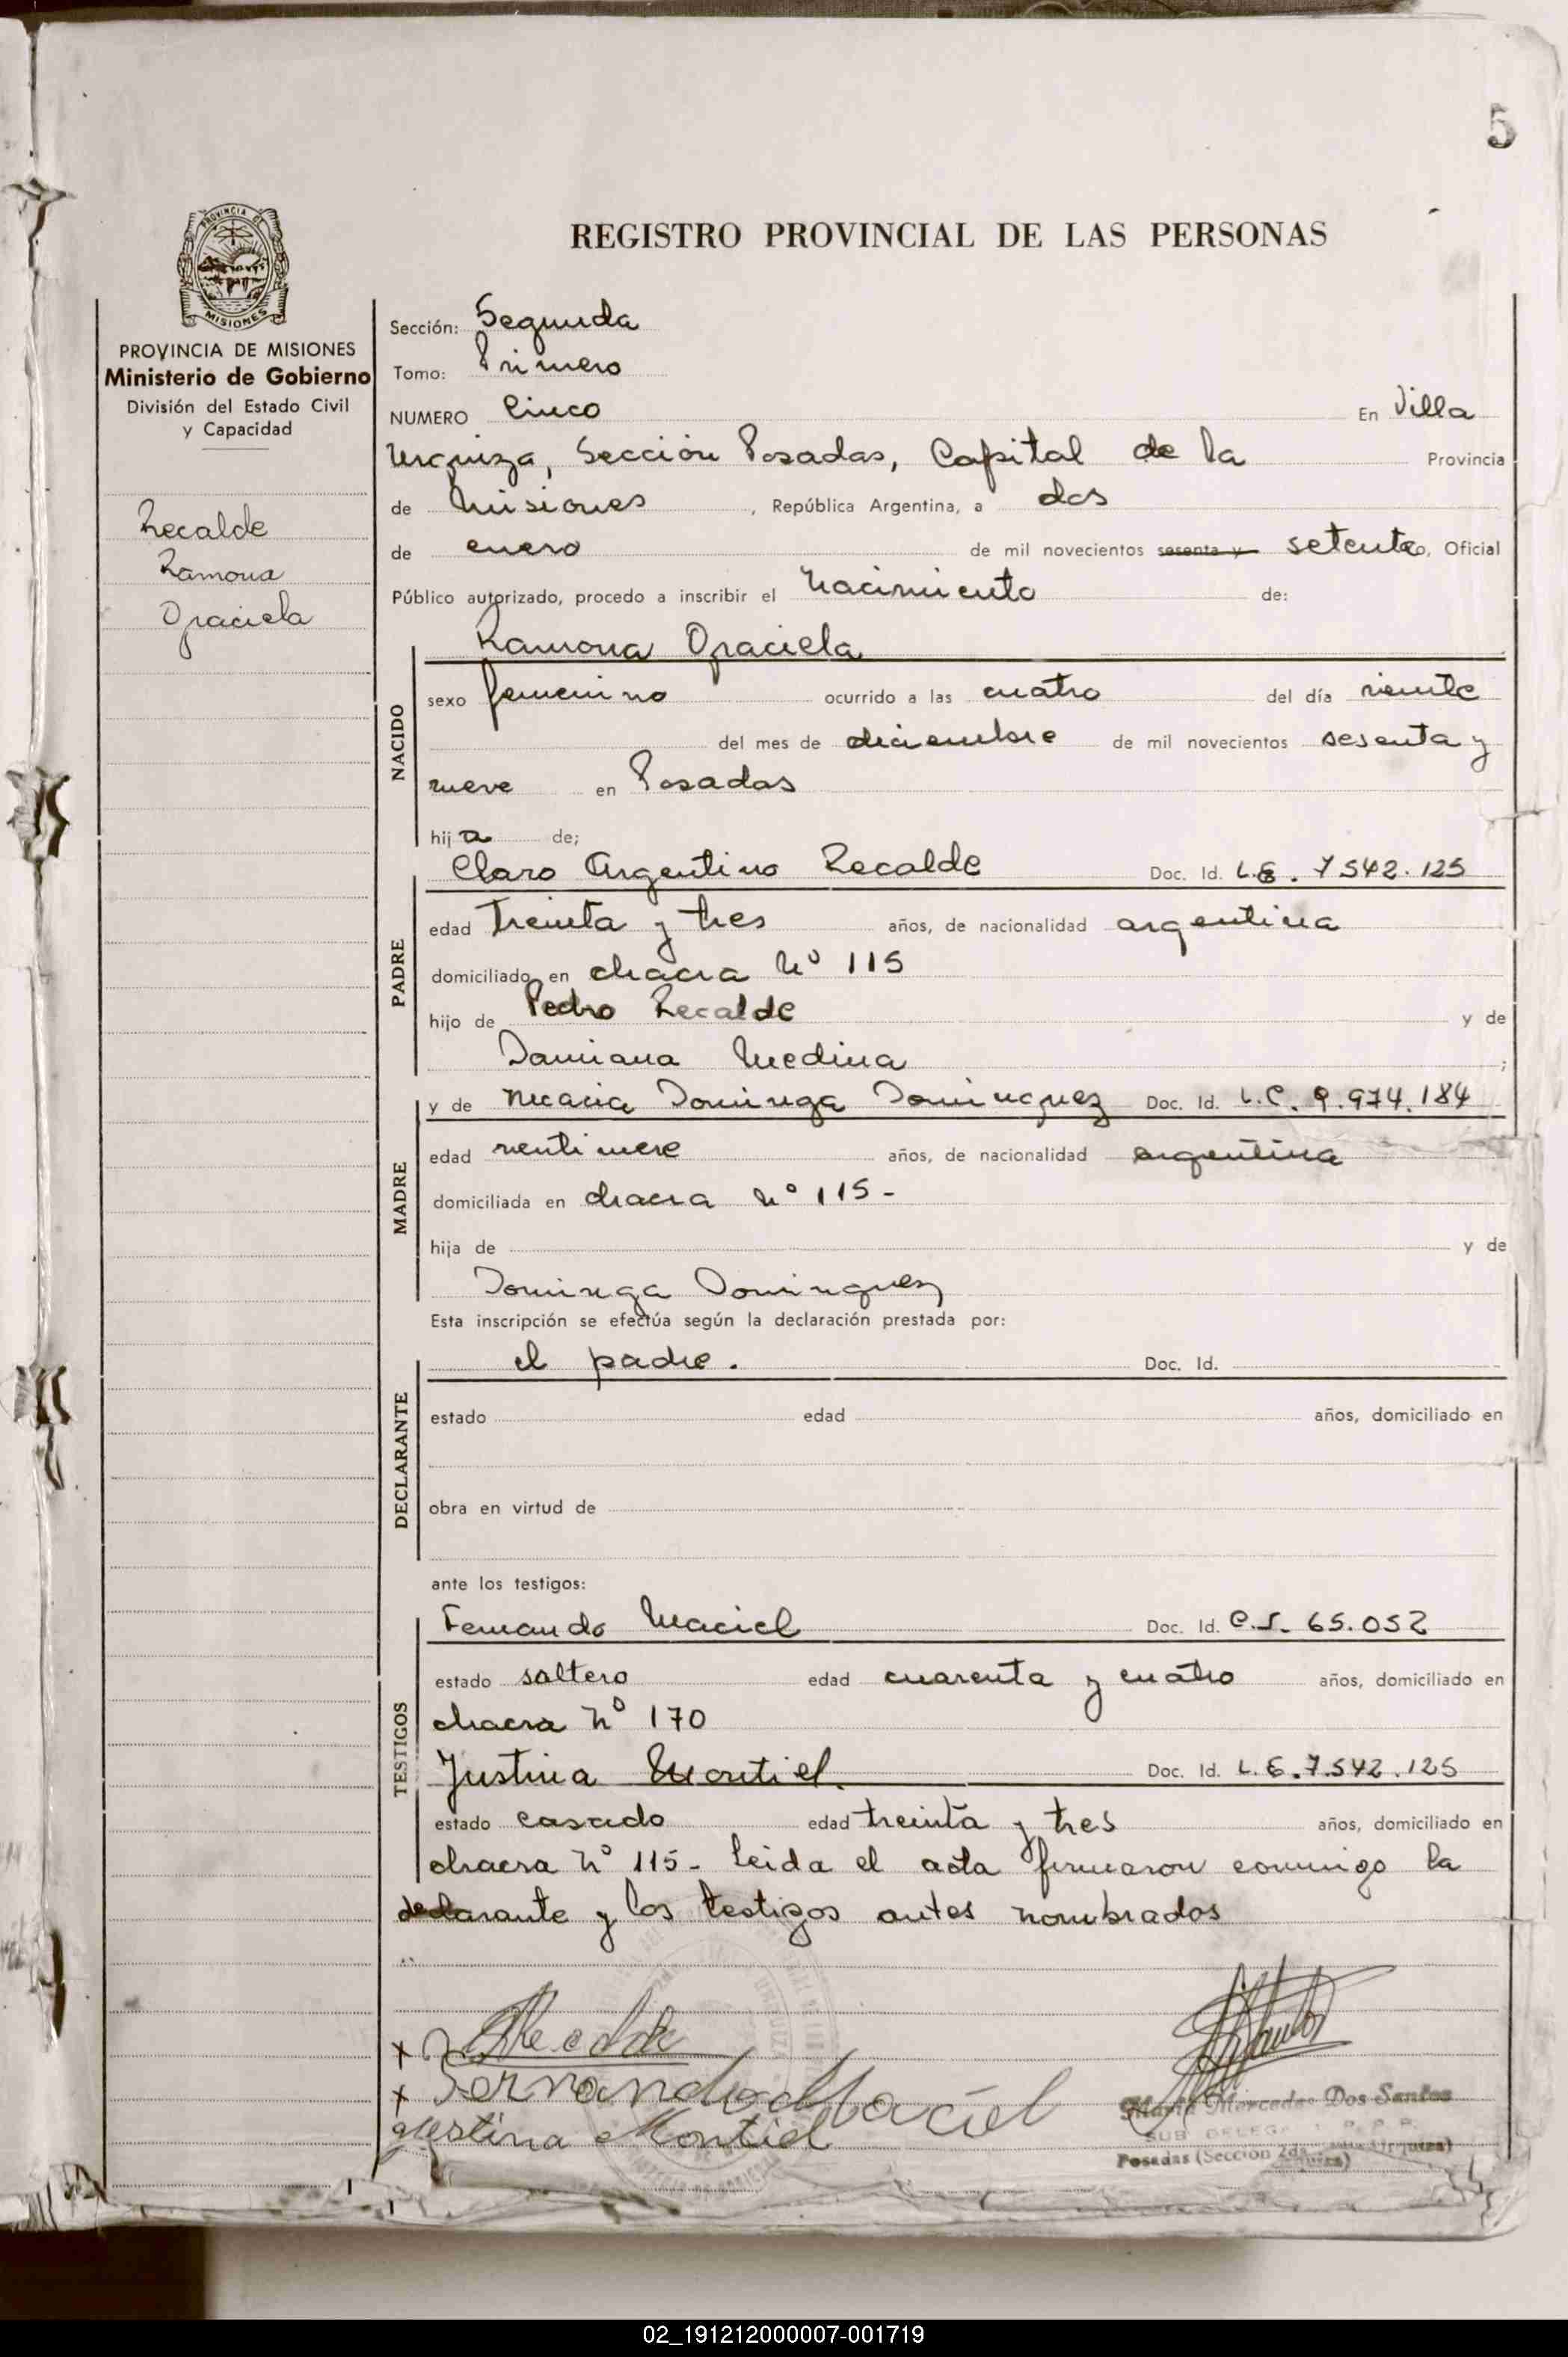 5
REGISTRO PROVINCIAL DE LAS PERSONAS
PROVINCIA DE MISIONES
Ministerio de Gobierno
División del Estado Civil
y Capacidad
Recalde
Ramona
Graciela
Sección: Segunda
Tomo: Primero
NUMERO Cinco En Villa
Urquiza, Sección Posadas, Capital de la Provincia
de Misiones, República Argentina, a dos
de enero de mil novecientos sesenta y setenta, Oficial
Público autorizado, procedo a inscribir el nacimiento de:
Ramona Graciela
NACIDO
sexo femenino ocurrido a las cuatro del día veinte
del mes de diciembre de mil novecientos sesenta y
nueve en Posadas
hija de;
Claro Argentino Recalde Doc. Id. L.E. 7542.125
PADRE
edad treinta y tres años, de nacionalidad argentina
domiciliado en chacra Nº 115
hijo de Pedro Recalde y de
Damiana Medina;
y de Maria Dominga Dominguez Doc. Id. L.C. 9.974.184
MADRE
edad ventinueve años, de nacionalidad argentina
domiciliada en chacra nº 115-
hija de y de
Dominga Dominguez
Esta inscripción se efectúa según la declaración prestada por:
el padre. Doc. Id.
DECLARANTE
estado edad años, domiciliado en
obra en virtud de
ante los testigos:
Fernando Maciel Doc. Id. C.I. 65.052
TESTIGOS
estado soltero edad cuarenta y cuatro años, domiciliado en
chacra nº 170
Justina Montiel. Doc. Id. L.E. 7.542.125
estado casado edad treinta y tres años, domiciliado en
chacra nº 115- Leida el acta firmaron conmigo la
declarante y los testigos antes nombrados
x Recalde
x Fernando Maciel
Justina Montiel
Maria Mercedes Dos Santos
SUB DELEG
Posadas (Sección 2da
02_191212000007-001719